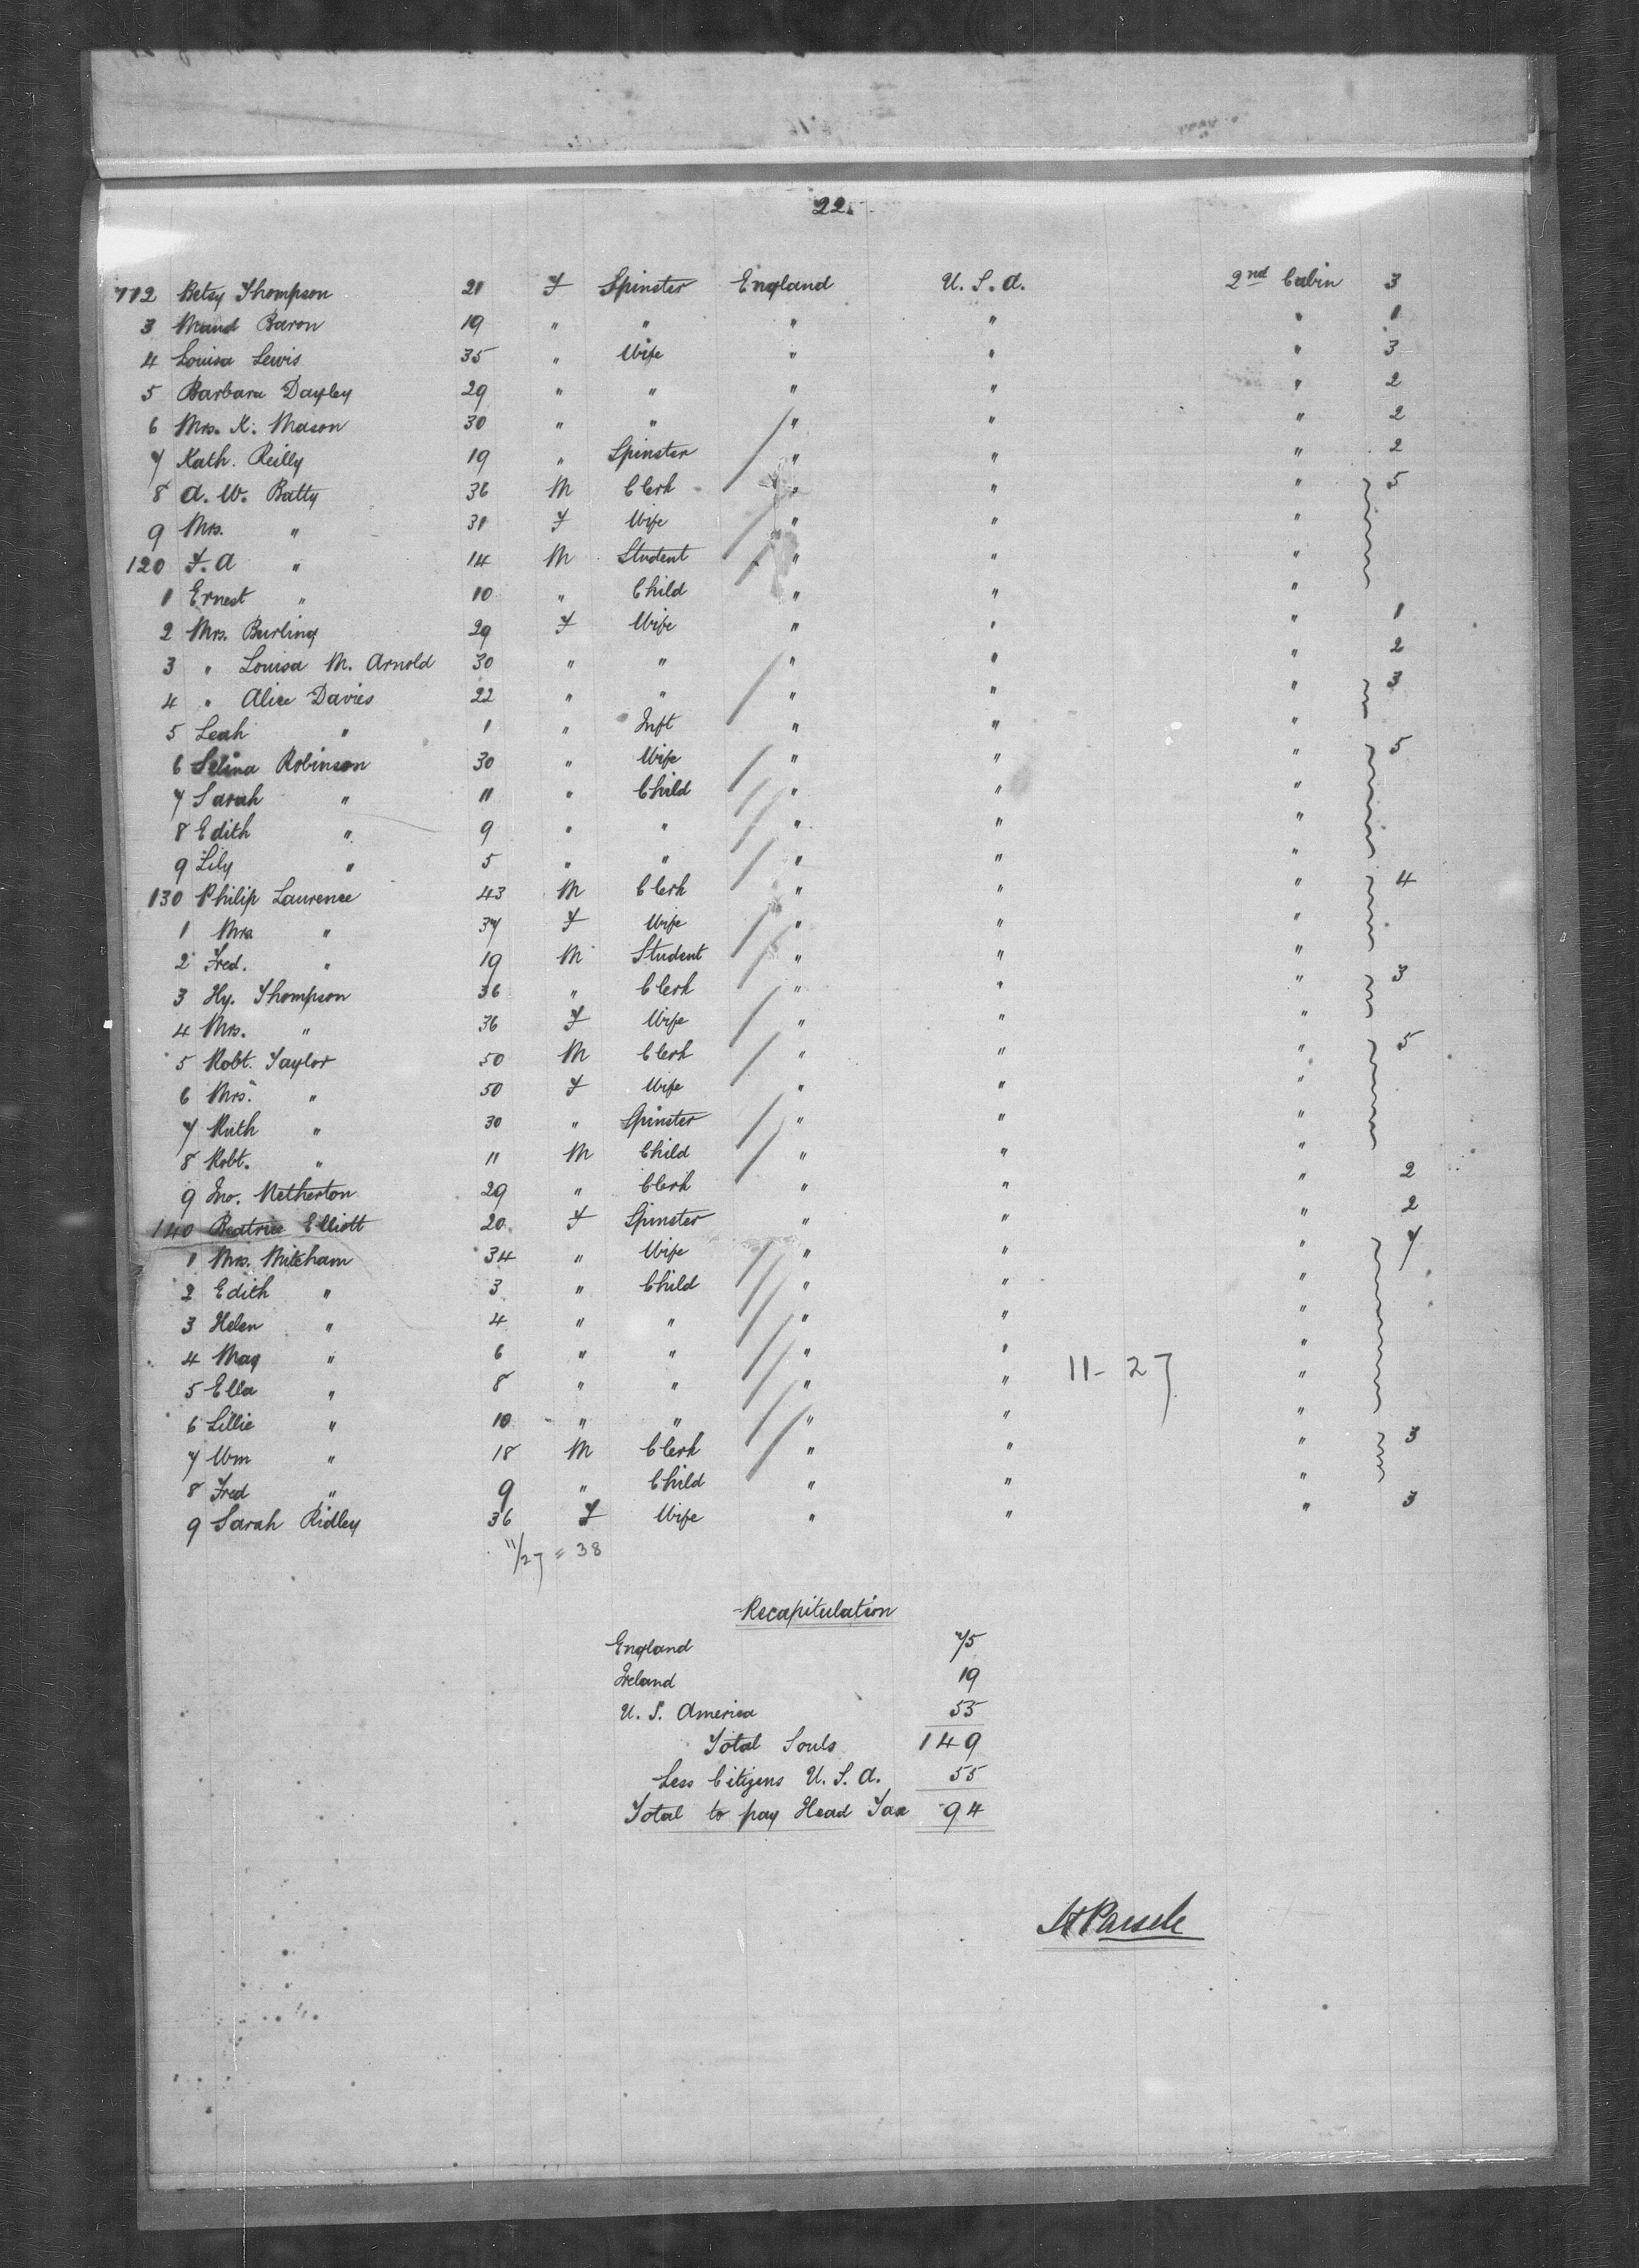 22.
112 Betsy Thompson 21 F Spinster England U. S. A. 2nd Cabin 3
3 Maud Baron 19 " " " " " 1
4 Louisa Lewis 35 " Wife " " " 3
5 Barbara Dayley 29 " " " " " 2
6 Mrs. K. Mason 30 " " " " " 2
7 Kath. Reilly 19 " Spinster " " " 2
8 A. W. Batty 36 M Clerk " " " 5
9 Mrs. " 31 F Wife " " "
120 F. A " 14 M Student " " "
1 Ernest " 10 " Child " " "
2 Mrs. Burling 29 F Wife " " " 1
3 " Louisa M. Arnold 30 " " " " " 2
4 " Alice Davies 22 " " " " " 3
5 Leah " 1 " Inft " " "
6 Selina Robinson 30 " Wife " " " 5
7 Sarah " 11 " Child " " "
8 Edith " 9 " " " " "
9 Lily " 5 " " " " "
130 Philip Laurence 43 M Clerk " " " 4
1 Mrs " 37 F Wife " " "
2 Fred. " 19 M Student " " "
3 Hy. Thompson 36 " Clerk " " " 3
4 Mrs. " 36 F Wife " " "
5 Robt. Taylor 50 M Clerk " " " 5
6 Mrs. " 50 F Wife " " "
7 Ruth " 30 " Spinster " " "
8 Robt. " 11 M Child " " "
9 Jno. Netherton 29 " Clerk " " " 2
140 Beatrice Elliott 20 F Spinster " " " 2
1 Mrs. Mitcham 34 " Wife " " " 7
2 Edith " 3 " Child " " "
3 Helen " 4 " " " " "
4 May " 6 " " " " "
5 Ella " 8 " " " " 11-27 "
6 Lillie " 10 " " " " "
7 Wm " 18 M Clerk " " " 3
8 Fred " 9 " Child " " "
9 Sarah Ridley 36 F Wife " " " 3
11/27 = 38
Recapitulation
England 75
Ireland 19
U. S. America 55
Total Souls 149
Less Citizens U. S. A. 55
Total to pay Head Tax 94